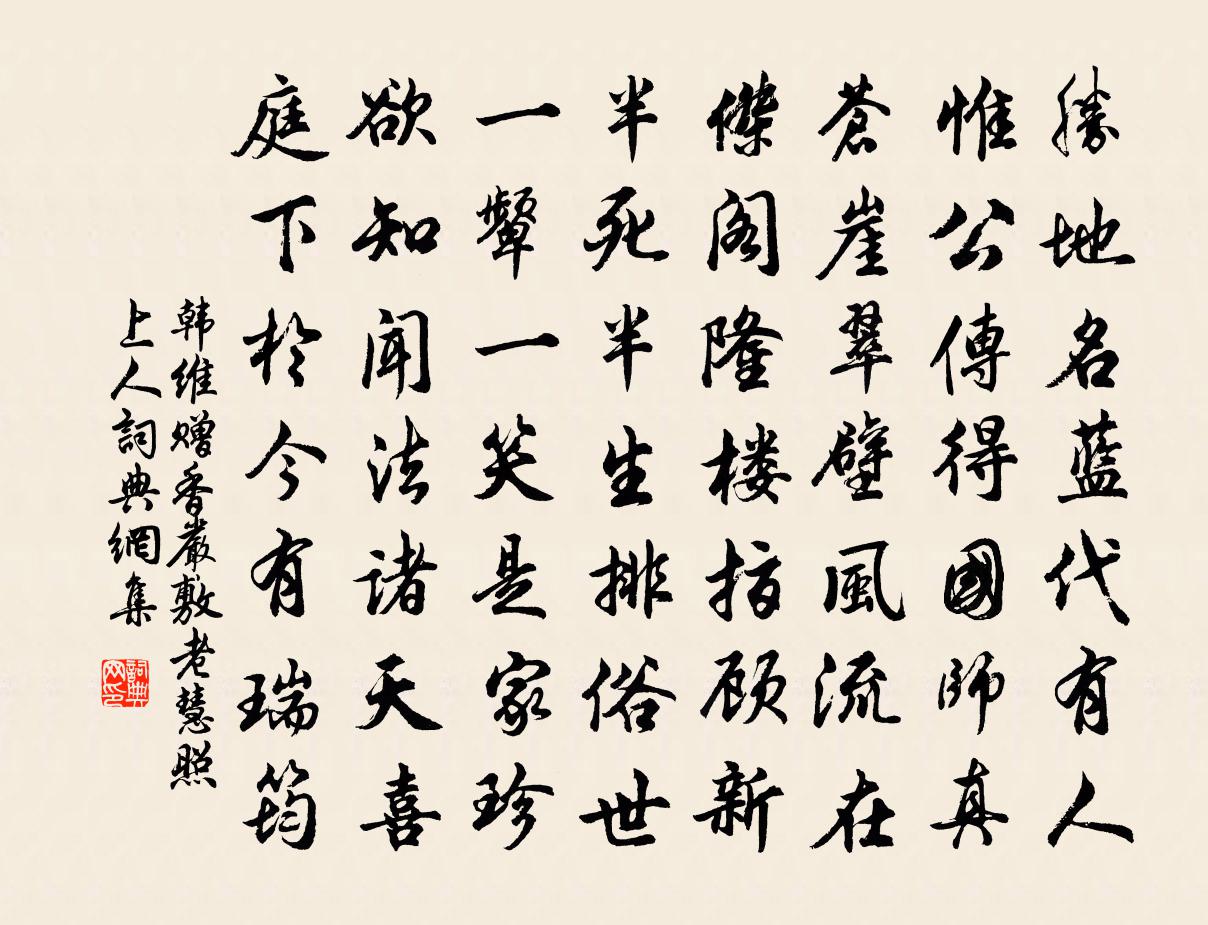 勝地名藍代有人
惟公傳得國師真
蒼崖翠壁風流在
傑阁隆楼指顾新
半死半生排俗世
一顰一笑是家珍
欲知闻法诸天喜
庭下於今有瑞筠
韩维赠香嚴敷老慧照
上人詞典網集
詞典网印